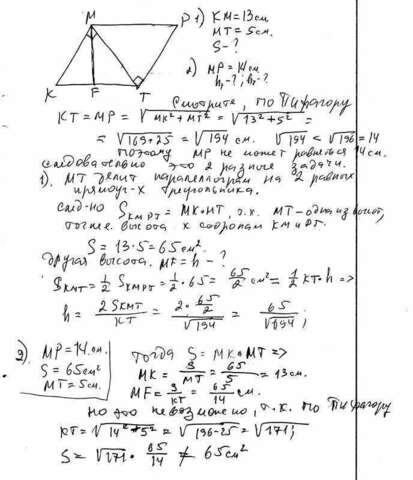 M
P
K
F
T
1) KM=13см
MT=5см.
S-?
2) MP=14см
h₁-?; h₂-?
Смотрите, по Пифагору
KT=MP=√MK²+MT² = √13²+5² =
= √169+25 = √194 см. √194 < √196=14
Поэтому MP не может равняться 14см.
следовательно это 2 разные задачи.
1). MT делит параллелограм на 2 равных
прямоуг-х треугольника.
след-но S KMPT = MK•MT, т.к. MT-одна из высот,
точнее высота к сторонам KM и PT.
S=13·5=65см².
другая высота. MF=h-?
S KMT=1/2 S KMPT=1/2·65=65/2 см²=1/2 KT·h =>
h = 2S KMT/KT = 2·65/2/√194 = 65/√194;
2). MP=14см.
S=65см²
MT=5см.
тогда S=MK•MT =>
MK = S/MT = 65/5 = 13см.
MF = S/KT = 65/14 см.
но это невозможно, т.к. по Пифагору
KT=√14²+5² = √196-25 = √171;
S= √171 · 65/14 ≠ 65см²